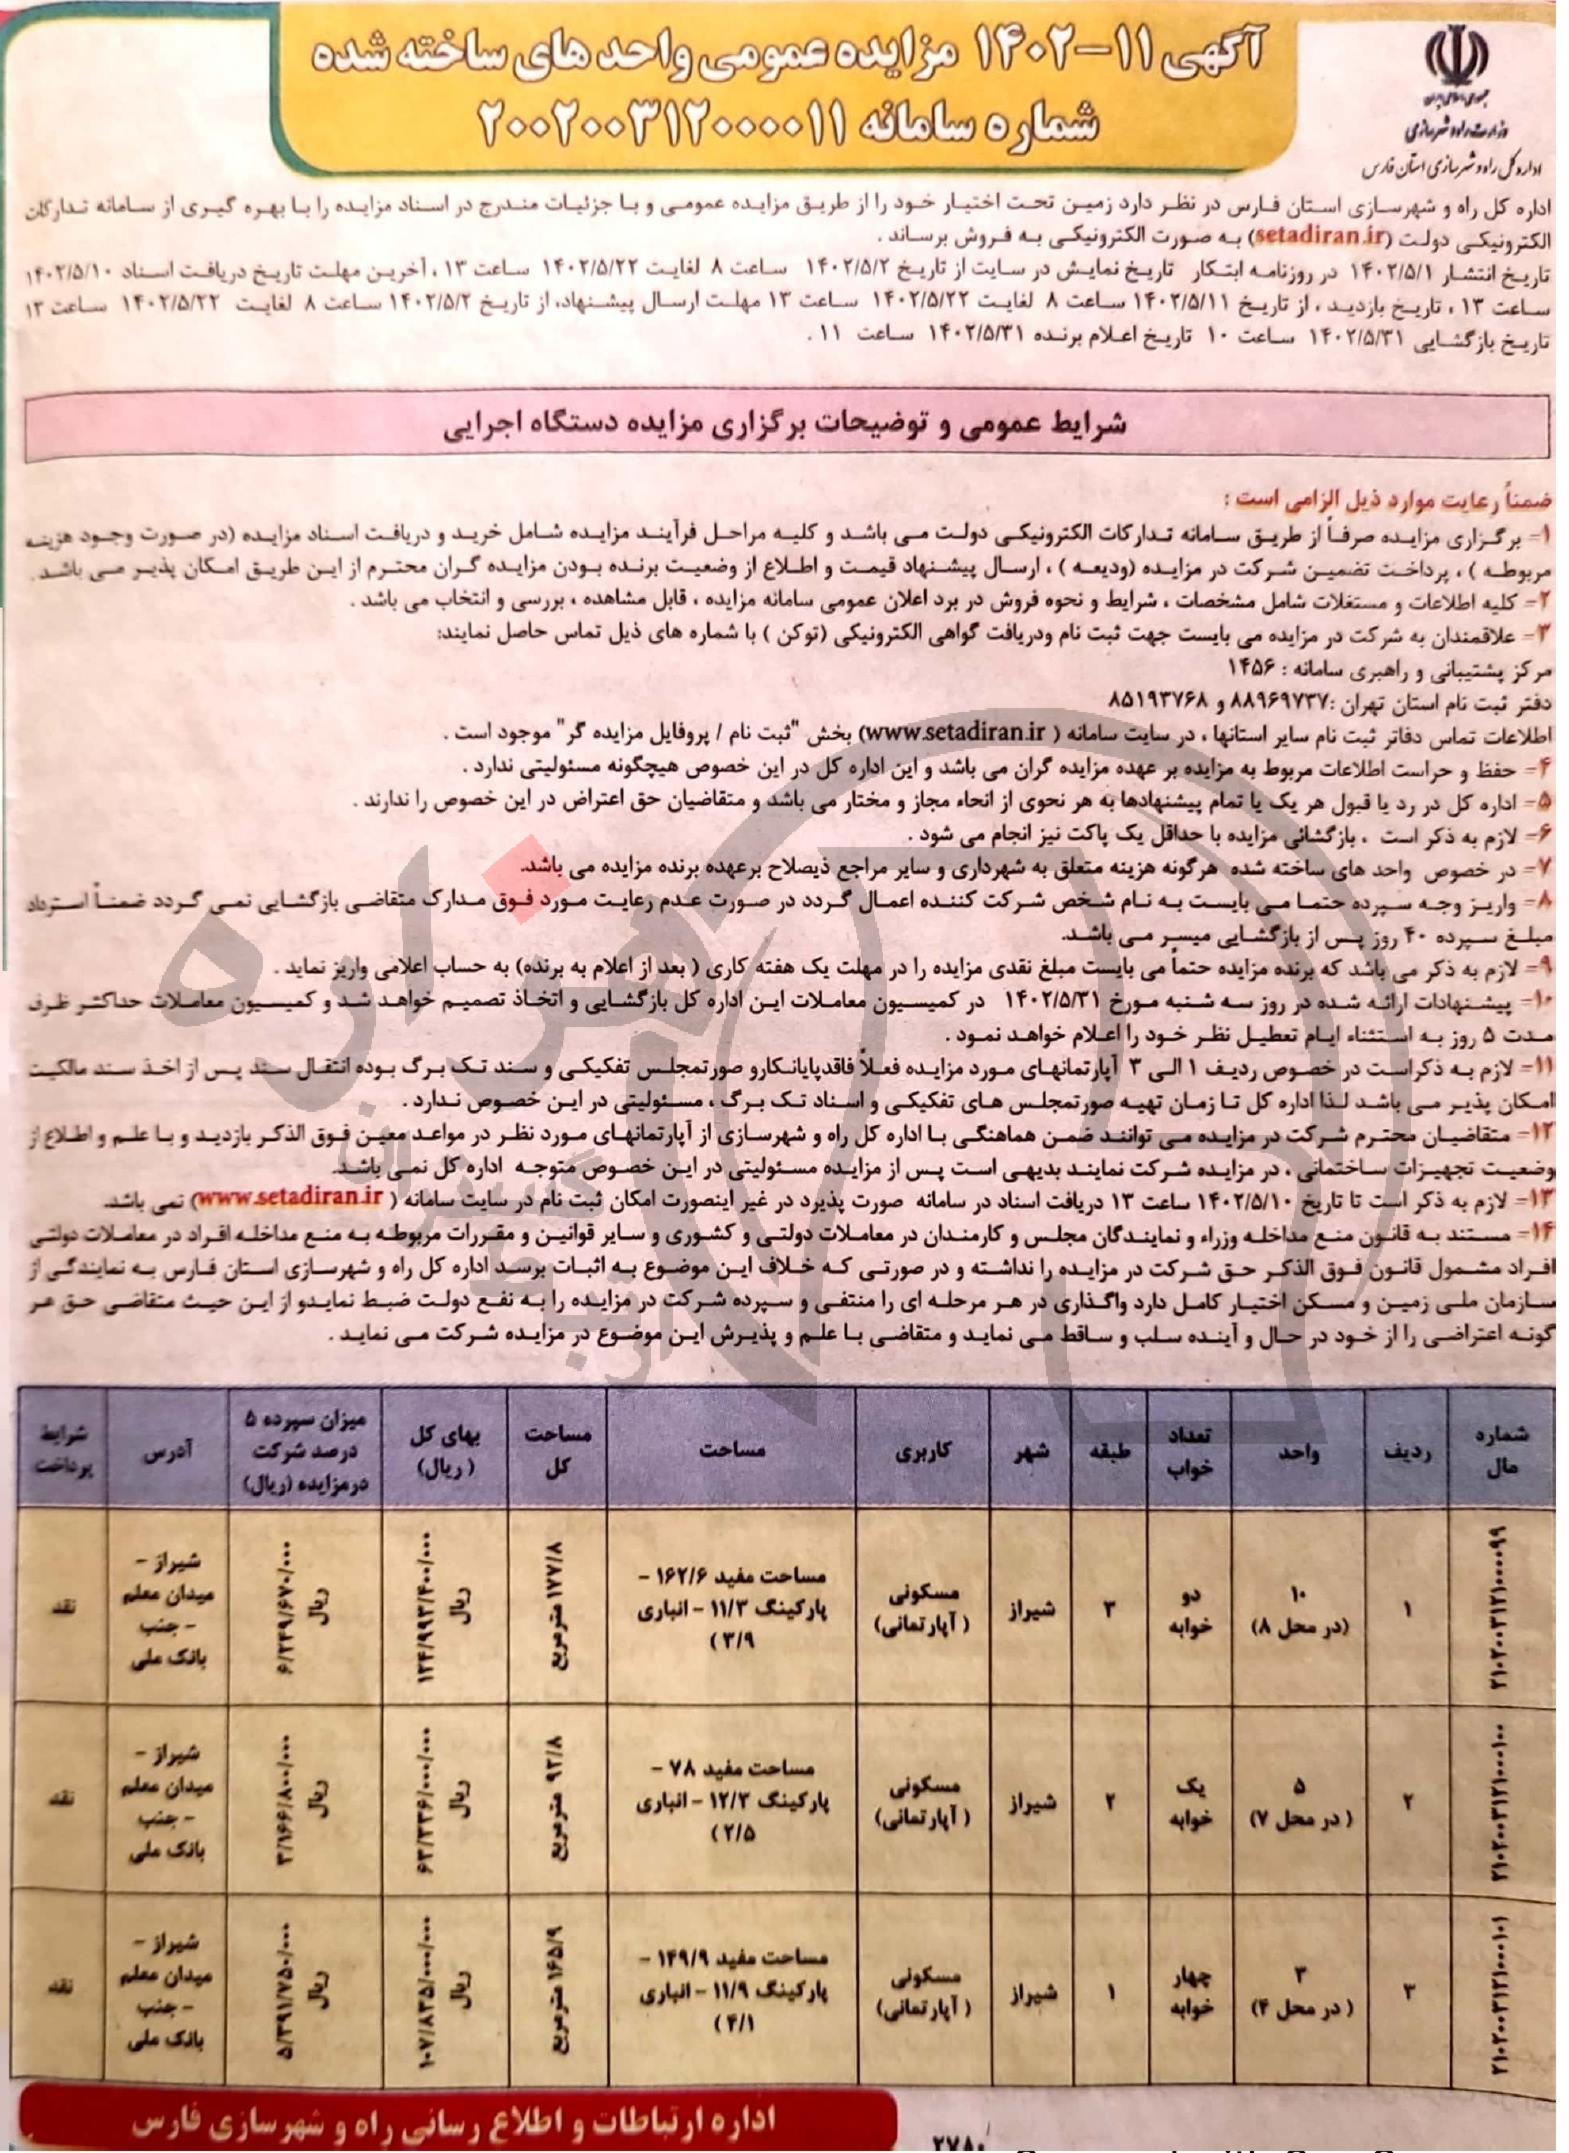 آگهی ۱۱-۱۴۰۲ مزایده عمومی واحد های ساخته شده
شماره سامانه ۲۰۰۲۰۰۳۱۲۰۰۰۰۱۱
جمهوری اسلامی ایران
وزارت راه و شهرسازی
اداره کل راه و شهرسازی استان فارس
اداره کل راه و شهرسازی استان فارس در نظر دارد زمین تحت اختیار خود را از طریق مزایده عمومی و با جزئیات مندرج در اسناد مزایده را با بهره گیری از سامانه تدارکات
الکترونیکی دولت (setadiran.ir) به صورت الکترونیکی به فروش برساند .
تاریخ انتشار ۱۴۰۲/۵/۱ در روزنامه ابتکار تاریخ نمایش در سایت از تاریخ ۱۴۰۲/۵/۲ ساعت ۸ لغایت ۱۴۰۲/۵/۲۲ ساعت ۱۳ ، آخرین مهلت تاریخ دریافت اسناد ۱۴۰۲/۵/۱۰
ساعت ۱۳ ، تاریخ بازدید ، از تاریخ ۱۴۰۲/۵/۱۱ ساعت ۸ لغایت ۱۴۰۲/۵/۲۲ ساعت ۱۳ مهلت ارسال پیشنهاد، از تاریخ ۱۴۰۲/۵/۲ ساعت ۸ لغایت ۱۴۰۲/۵/۲۲ ساعت ۱۳
تاریخ بازگشایی ۱۴۰۲/۵/۳۱ ساعت ۱۰ تاریخ اعلام برنده ۱۴۰۲/۵/۳۱ ساعت ۱۱ .
شرایط عمومی و توضیحات برگزاری مزایده دستگاه اجرایی
ضمناً رعایت موارد ذیل الزامی است :
۱- برگزاری مزایده صرفاً از طریق سامانه تدارکات الکترونیکی دولت می باشد و کلیه مراحل فرآیند مزایده شامل خرید و دریافت اسناد مزایده (در صورت وجود هزینه
مربوطه ) ، پرداخت تضمین شرکت در مزایده (ودیعه ) ، ارسال پیشنهاد قیمت و اطلاع از وضعیت برنده بودن مزایده گران محترم از این طریق امکان پذیر می باشد .
۲- کلیه اطلاعات و مستغلات شامل مشخصات ، شرایط و نحوه فروش در برد اعلان عمومی سامانه مزایده ، قابل مشاهده ، بررسی و انتخاب می باشد .
۳- علاقمندان به شرکت در مزایده می بایست جهت ثبت نام ودریافت گواهی الکترونیکی (توکن ) با شماره های ذیل تماس حاصل نمایند:
مرکز پشتیبانی و راهبری سامانه : ۱۴۵۶
دفتر ثبت نام استان تهران :۸۸۹۶۹۷۳۷ و ۸۵۱۹۳۷۶۸
اطلاعات تماس دفاتر ثبت نام سایر استانها ، در سایت سامانه ( www.setadiran.ir) بخش "ثبت نام / پروفایل مزایده گر" موجود است .
۴- حفظ و حراست اطلاعات مربوط به مزایده بر عهده مزایده گران می باشد و این اداره کل در این خصوص هیچگونه مسئولیتی ندارد .
۵- اداره کل در رد یا قبول هر یک یا تمام پیشنهادها به هر نحوی از انحاء مجاز و مختار می باشد و متقاضیان حق اعتراض در این خصوص را ندارند .
۶- لازم به ذکر است ، بازگشائی مزایده با حداقل یک پاکت نیز انجام می شود .
۷- در خصوص واحد های ساخته شده هرگونه هزینه متعلق به شهرداری و سایر مراجع ذیصلاح برعهده برنده مزایده می باشد.
۸- واریز وجه سپرده حتما می بایست به نام شخص شرکت کننده اعمال گردد در صورت عدم رعایت مورد فوق مدارک متقاضی بازگشایی نمی گردد ضمناً استرداد
مبلغ سپرده ۴۰ روز پس از بازگشایی میسر می باشد.
۹- لازم به ذکر می باشد که برنده مزایده حتماً می بایست مبلغ نقدی مزایده را در مهلت یک هفته کاری ( بعد از اعلام به برنده) به حساب اعلامی واریز نماید .
۱۰- پیشنهادات ارائه شده در روز سه شنبه مورخ ۱۴۰۲/۵/۳۱ در کمیسیون معاملات این اداره کل بازگشایی و اتخاذ تصمیم خواهد شد و کمیسیون معاملات حداکثر ظرف
مدت ۵ روز به استثناء ایام تعطیل نظر خود را اعلام خواهد نمود .
۱۱- لازم به ذکراست در خصوص ردیف ۱ الی ۳ آپارتمانهای مورد مزایده فعلاً فاقدپایانکارو صورتمجلس تفکیکی و سند تک برگ بوده انتقال سند پس از اخذ سند مالکیت
امکان پذیر می باشد لذا اداره کل تا زمان تهیه صورتمجلس های تفکیکی و اسناد تک برگ ، مسئولیتی در این خصوص ندارد .
۱۲- متقاضیان محترم شرکت در مزایده می توانند ضمن هماهنگی با اداره کل راه و شهرسازی از آپارتمانهای مورد نظر در مواعد معین فوق الذکر بازدید و با علم و اطلاع از
وضعیت تجهیزات ساختمانی ، در مزایده شرکت نمایند بدیهی است پس از مزایده مسئولیتی در این خصوص متوجه اداره کل نمی باشد.
۱۳- لازم به ذکر است تا تاریخ ۱۴۰۲/۵/۱۰ ساعت ۱۳ دریافت اسناد در سامانه صورت پذیرد در غیر اینصورت امکان ثبت نام در سایت سامانه ( www.setadiran.ir) نمی باشد.
۱۴- مستند به قانون منع مداخله وزراء و نمایندگان مجلس و کارمندان در معاملات دولتی و کشوری و سایر قوانین و مقررات مربوطه به منع مداخله افراد در معاملات دولتی
افراد مشمول قانون فوق الذکر حق شرکت در مزایده را نداشته و در صورتی که خلاف این موضوع به اثبات برسد اداره کل راه و شهرسازی استان فارس به نمایندگی از
سازمان ملی زمین و مسکن اختیار کامل دارد واگذاری در هر مرحله ای را منتفی و سپرده شرکت در مزایده را به نفع دولت ضبط نمایدو از این حیث متقاضی حق هر
گونه اعتراضی را از خود در حال و آینده سلب و ساقط می نماید و متقاضی با علم و پذیرش این موضوع در مزایده شرکت می نماید .
شماره مال | ردیف | واحد | تعداد خواب | طبقه | شهر | کاربری | مساحت | مساحت کل | بهای کل (ریال) | میزان سپرده ۵ درصد شرکت درمزایده (ریال) | آدرس | شرایط پرداخت
۲۱۰۲۰۰۳۱۲۱۰۰۰۰۹۹ | ۱ | ۱۰ (در محل ۸) | دو خوابه | ۳ | شیراز | مسکونی (آپارتمانی) | مساحت مفید ۱۶۲/۶ - پارکینگ ۱۱/۳ - انباری ۳/۹ ) | ۱۷۷/۸ مترمربع | ۱۲۴/۹۹۳/۴۰۰/۰۰۰ ریال | ۶/۲۴۹/۶۷۰/۰۰۰ ریال | شیراز - میدان معلم - جنب بانک ملی | نقد
۲۱۰۲۰۰۳۱۲۱۰۰۰۱۰۰ | ۲ | ۵ (در محل ۷) | یک خوابه | ۲ | شیراز | مسکونی (آپارتمانی) | مساحت مفید ۷۸ - پارکینگ ۱۲/۳ - انباری ۲/۵ ) | ۹۲/۸ مترمربع | ۶۳/۳۳۶/۰۰۰/۰۰۰ ریال | ۳/۱۶۶/۸۰۰/۰۰۰ ریال | شیراز - میدان معلم - جنب بانک ملی | نقد
۲۱۰۲۰۰۳۱۲۱۰۰۰۱۰۱ | ۳ | ۳ (در محل ۴) | چهار خوابه | ۱ | شیراز | مسکونی (آپارتمانی) | مساحت مفید ۱۴۹/۹ - پارکینگ ۱۱/۹ - انباری ۴/۱ ) | ۱۶۵/۹ مترمربع | ۱۰۷/۸۳۵/۰۰۰/۰۰۰ ریال | ۵/۳۹۱/۷۵۰/۰۰۰ ریال | شیراز - میدان معلم - جنب بانک ملی | نقد
اداره ارتباطات و اطلاع رسانی راه و شهرسازی فارس
۲۷۸۰